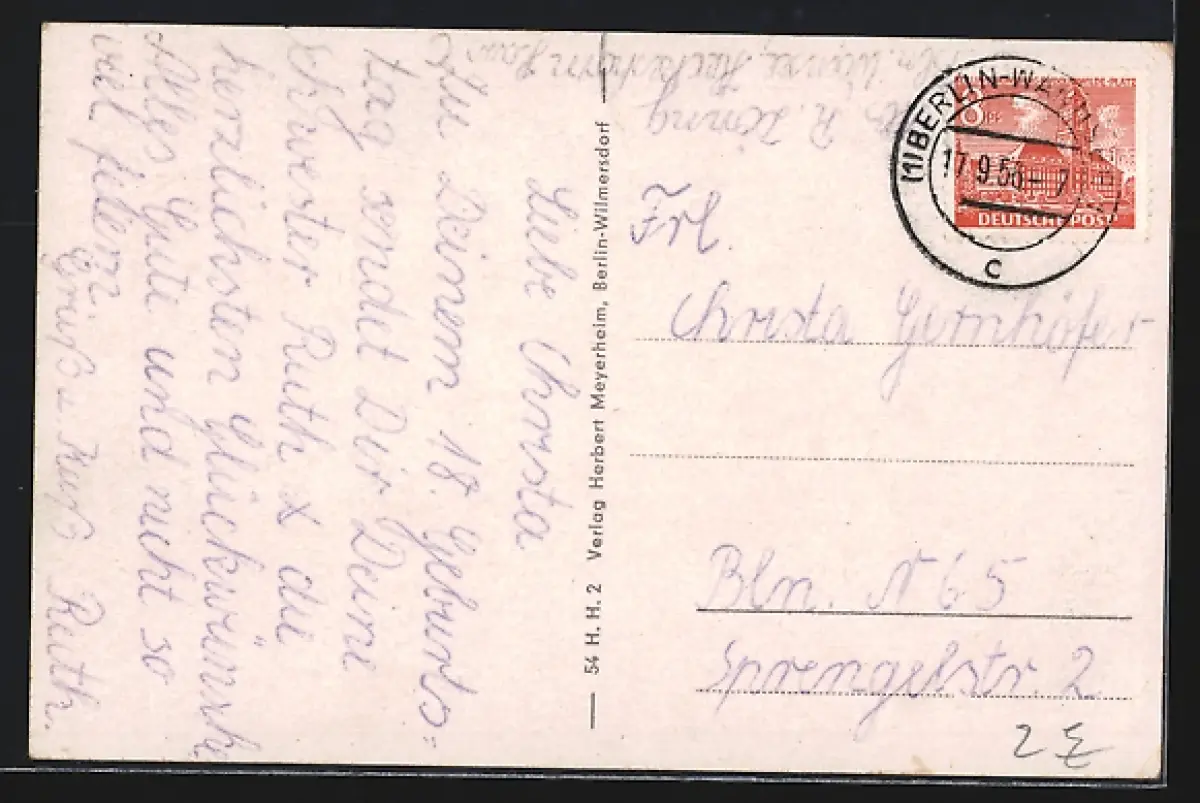 Liebe Christa
Zu Deinem 18. Geburts-
tag sendet Dir Deine
Schwester Ruth x die
herzlichsten Glückwünsche
Alles Gute und nicht so
viel feiern
Gruß u. Kuß Ruth.
54 H. H. 2 Verlag Herbert Meyerheim, Berlin-Wilmersdorf
R. Döring
(1) BERLIN-WANNSEE
17.9.56-7
c
8 PF
DEUTSCHE POST
Frl.
Christa Gernhöfer
Bln. N 65
Sprengelstr 2
2